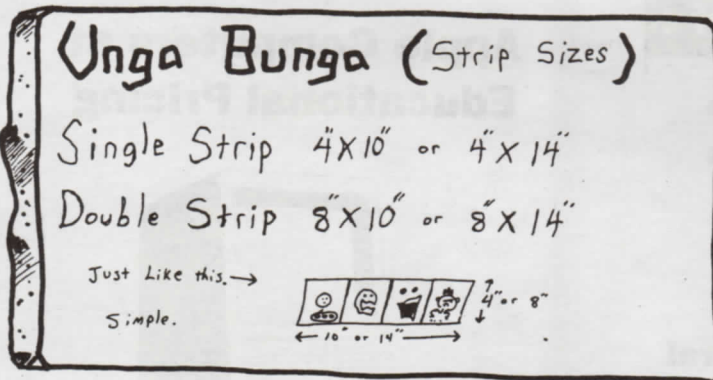 Unga Bunga (Strip Sizes)
Single Strip 4"X10" or 4"X14"
Double Strip 8"X10" or 8"X14"
Just Like this. →
4" or 8"
Simple.
10" or 14"